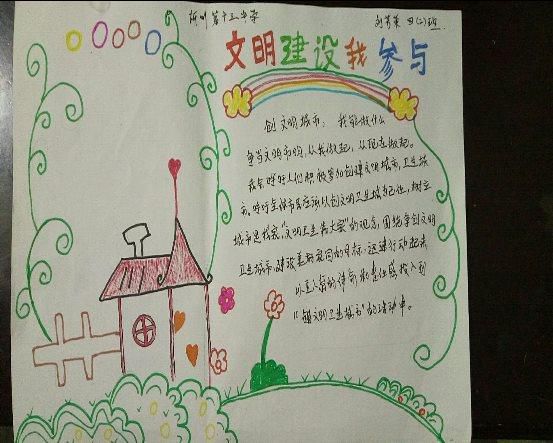 第十五中学
四(二)班
文明建设我参与
创文明城市，我能做什么
争当文明市民，从我做起，从现在做起。
我会呼吁人们积极参加创建文明城市，卫生城
市。呼吁全体市民应该以创文明卫生城为己任，树立
城市是我家，"文明卫生靠大家"的观念，围绕争创文明
卫生城市，建设美好家园的目标，迅速行动起来
以主人翁的
责任感投入到
文明卫生城市"的活动中。